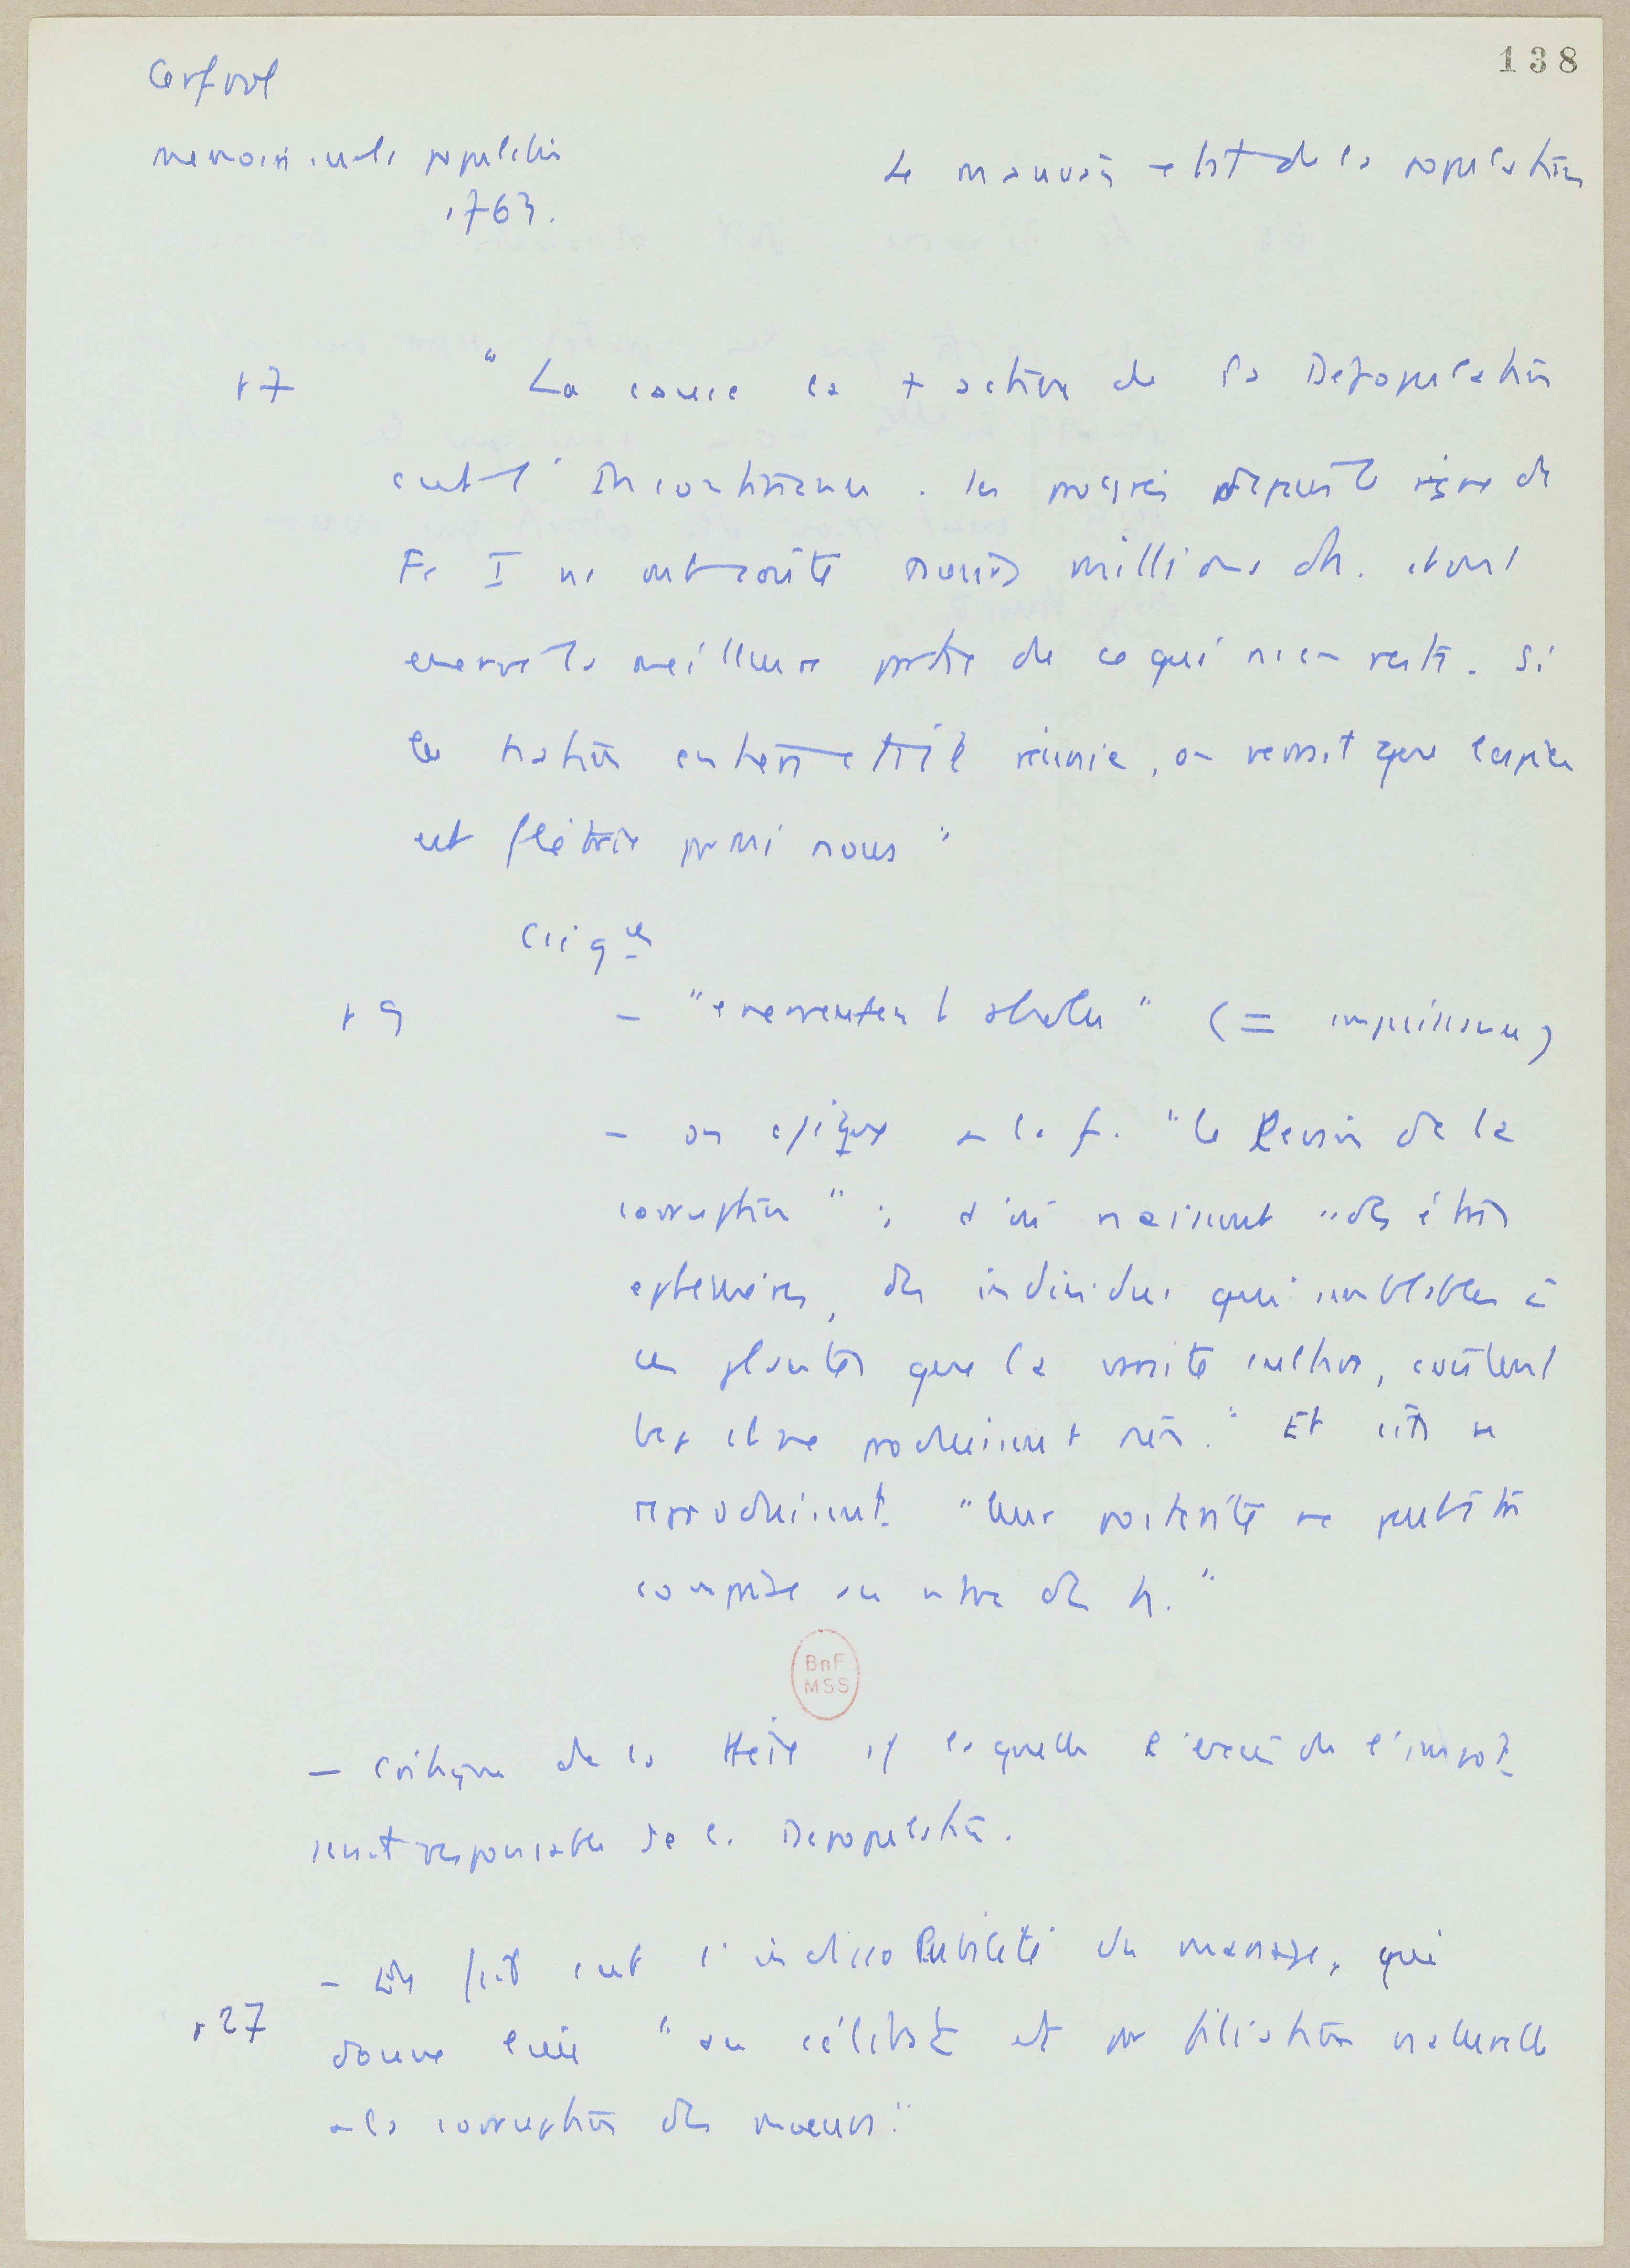 138
Cerfvol
memoire sur la population
1763.
Le mauvais état de la population
p 7 "La cause la + active de la Depopulation
c'est l'Incontinence. Ses progrès depuis le règne de
Fr I ns ont coûté plusieurs millions d'h. et ont
enervé la meilleure partie de ce qui ns en reste. Si
la nation entière était réunie, on verrait que l'espèce
est flétrie parmi nous"
Csq es
p 9 – "enervement absolu" (= impuissance)
– on a "le levain de la
corruption" ; d'où naissent "des êtres
ephemères, des individus qui semblables à
ces plantes que la vanité cultive, coûtent
bcp et ne produisent rien." Et s'ils se
reproduisent "leur postérité ne peut être
comprise au nbre des h."
BnF
MSS
– critique de la thèse s/ laquelle l'excès de l'impôt
serait responsable de la Depopulation.
– En fait c'est l'indissolubilité du mariage, qui
p 27 donne lieu "au célibat et par filiation naturelle
à la corruption des moeurs."